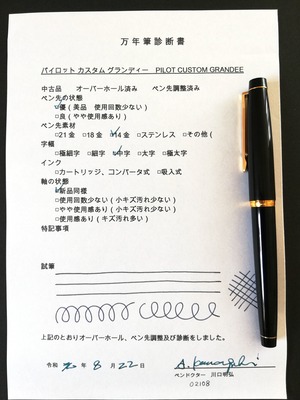 万年筆診断書
パイロット カスタム グランディー　PILOT CUSTOM GRANDEE
中古品　オーバーホール済み　ペン先調整済み
ペン先の状態
☑優（美品　使用回数少ない）
□良（やや使用感あり）
ペン先素材
□21金　□18金　☑14金　□ステンレス　□その他（
字幅
□極細字　□細字　☑中字　□太字　□極太字
インク
□カートリッジ、コンバータ式　□吸入式
軸の状態
☑新品同様
□使用回数少ない（小キズ汚れ少ない）
□やや使用感あり（小キズ汚れ少ない）
□使用感あり（キズ汚れ多い）
特記事項
試筆
上記のとおりオーバーホール、ペン先調整及び診断をしました。
令和 元 年 8 月 22 日
ペンドクター　川口明弘
02108